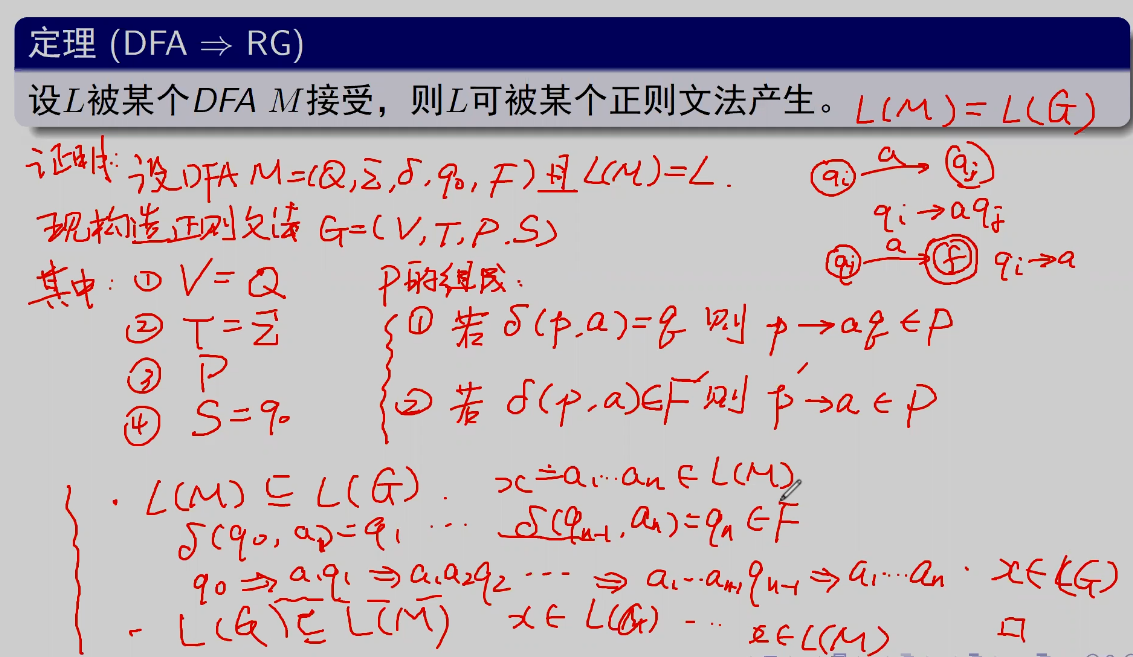 定理 (DFA ⇒ RG)
设L被某个DFA M接受，则L可被某个正则文法产生。 L(M) = L(G)
证明: 设DFA M=(Q,Σ,δ,q₀,F) 且 L(M)=L.
qᵢ a qⱼ
现构造正则文法 G=(V,T,P,S)
qᵢ→aqⱼ
qᵢ a f qᵢ→a
其中: ① V=Q
② T=Σ
③ P
④ S=q₀
P的组成:
① 若 δ(p,a)=q 则 p→aq∈P
② 若 δ(p,a)∈F 则 p→a∈P
· L(M) ⊆ L(G). x=a₁…aₙ∈L(M)
δ(q₀,a₁)=q₁ … δ(qₙ₋₁,aₙ)=qₙ∈F
q₀⇒a₁q₁⇒a₁a₂q₂ … ⇒a₁…aₙ₋₁qₙ₋₁⇒a₁…aₙ. x∈L(G)
· L(G)⊆L(M) x∈L(G) … x∈L(M) □